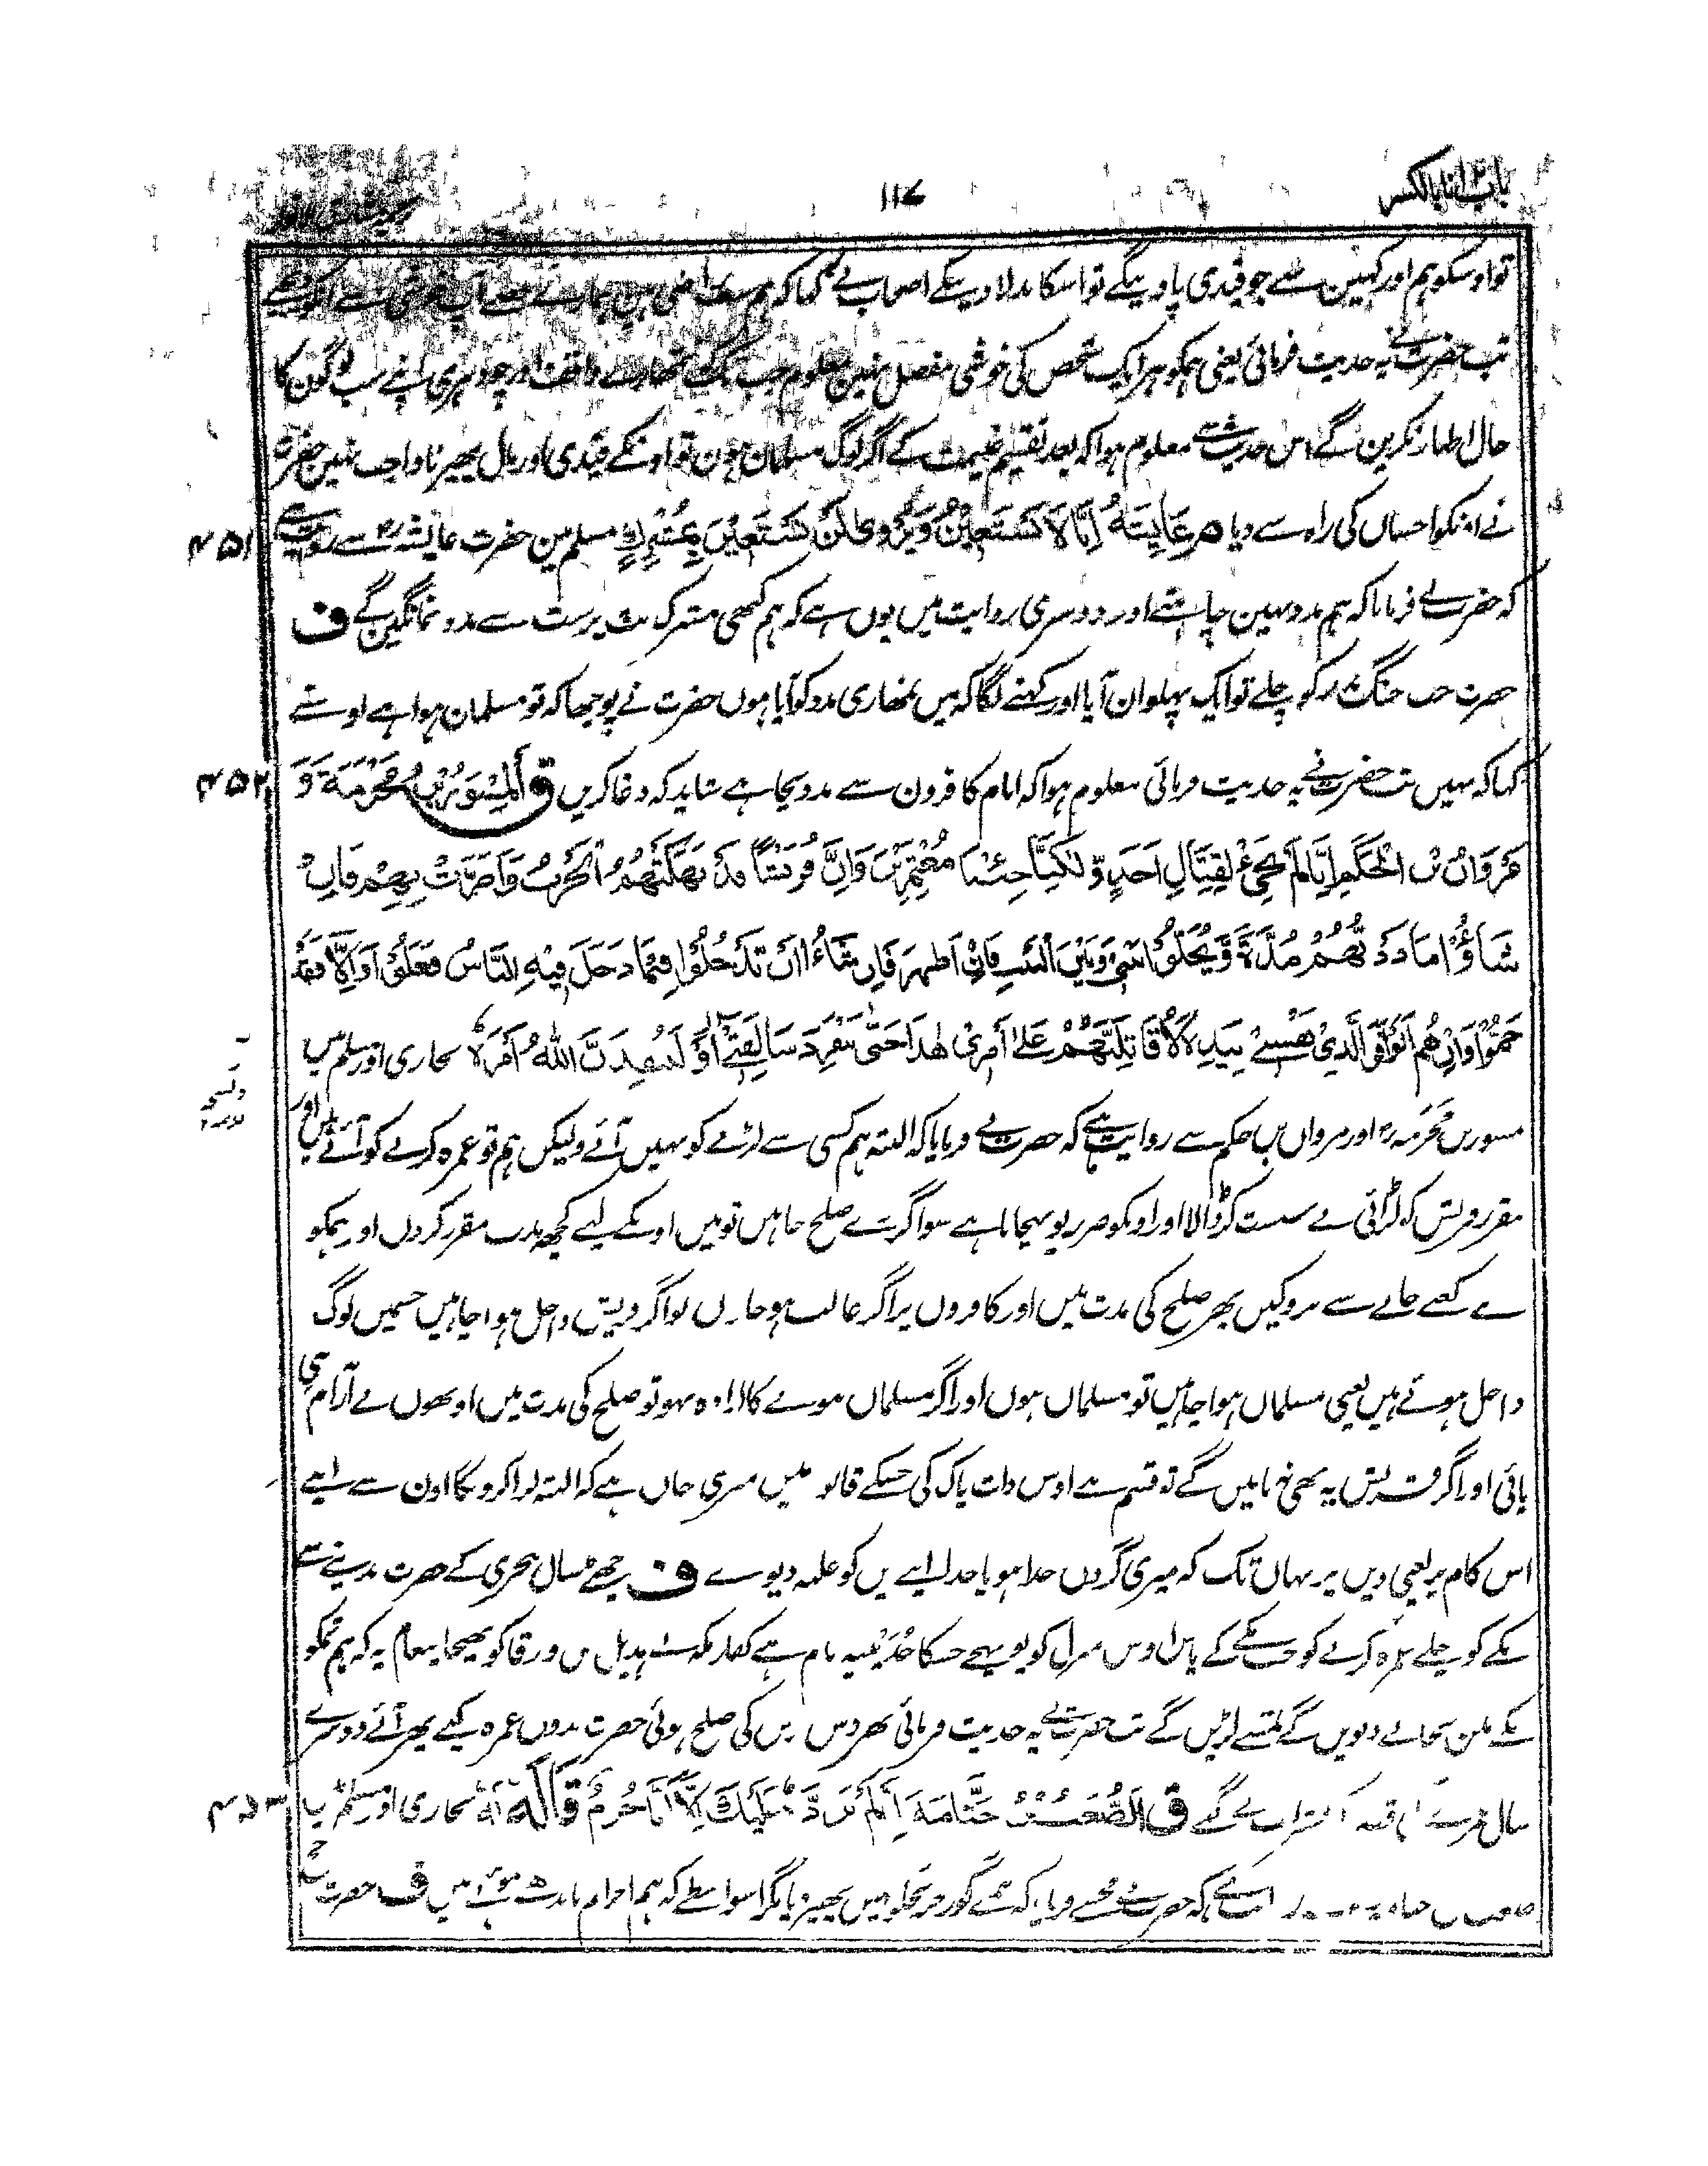 باب انا بالکسر
۱۱۷
تو اوسکو ہم اور کہین سے جو قیدی پاوینگے تو اسکا بدلا دینگے اصحاب نے کہا کہ ہم سب راضی ہیں
تب حضرت نے یہ حدیث فرمائی یعنی ہمکو ہر ایک شخص کی خوشی مفصل نہین معلوم جب تک کہ تمھارے واقف اور چودہری اپنے سب لوگون کا
حال اظہار نکرین گے اس حدیث سے معلوم ہوا کہ بعد تقسیم غنیمت کے اگر لوگ مسلمان ہون تو اونکے قیدی اور مال پھیرنا واجب نہین حضرت
نے انکو احسان کی راہ سے دیا م عَایِشَةُ اِنَّا لَا نَسْتَعِیْنُ وَیُرْوٰی لَنْ نَسْتَعِیْنَ بِمُشْرِكٍ مسلم مین حضرت عایشہ رض سے روایت ہے ۴۵۱
کہ حضرت نے فرمایا کہ ہم مدد نہین چاہتے اور دوسری روایت میں یوں ہے کہ ہم کبھی مشرک بت پرست سے مدد نمانگین گے ف
حضرت جب جنگ بدر کو چلے تو ایک پہلوان آیا اور کہنے لگا کہ میں تمھاری مدد کو آیا ہوں حضرت نے پوچھا کہ تو مسلمان ہوا ہے اوسنے
کہا کہ نہیں تب حضرت نے یہ حدیث فرمائی معلوم ہوا کہ امام کافرون سے مدد بیجا ہے شاید کہ دغا کریں ق اَلْمِسْوَرُ بْنُ مَخْرَمَةَ وَ ۴۵۲
مَرْوَانُ بْنُ الْحَكَمِ اِنَّا لَمْ نَجِئْ لِقِتَالِ اَحَدٍ وَّلٰكِنَّا جِئْنَا مُعْتَمِرِیْنَ وَاِنَّ قُرَیْشًا قَدْ نَهَكَتْهُمُ الْحَرْبُ وَاَضَرَّتْ بِهِمْ فَاِنْ
شَاءُوْا مَادَدْتُّهُمْ مُدَّةً وَّیُخَلُّوْا بَیْنِیْ وَبَیْنَ النَّاسِ فَاِنْ اَظْهَرْ فَاِنْ شَاءُوْا اَنْ تَدْخُلُوْا فِیْمَا دَخَلَ فِیْهِ النَّاسُ فَعَلُوْا وَاِلَّا فَقَدْ
جَمُّوْا وَاِنْ هُمْ اَبَوْا فَوَالَّذِیْ نَفْسِیْ بِیَدِهٖ لَاُقَاتِلَنَّهُمْ عَلٰی اَمْرِیْ هٰذَا حَتّٰی تَنْفَرِدَ سَالِفَتِیْ اَوْ لَیُنْفِذَنَّ اللّٰهُ اَمْرَهٗ بخاری اور مسلم میں
مسور بن مَخرَمہ رض اور مروان بن حکم سے روایت ہے کہ حضرت نے فرمایا کہ البتہ ہم کسی سے لڑنے کو نہیں آئے ولیکن ہم تو عمرہ کرنے کو آئے ہیں اور
مقرر قریش کو لڑائی نے سست کر ڈالا اور اونکو ضرر پونہچایا ہے سو اگر وے صلح چاہیں تو میں اونکے لیے کچھ مدت مقرر کر دوں اور ہمکو
وے کعبے جانے سے نروکیں پھر صلح کی مدت میں اور کافروں پر اگر غالب ہو جاؤں تو اگر قریش داخل ہوا چاہیں جسمیں لوگ
داخل ہوتے ہیں یعنی مسلمان ہوا چاہیں تو مسلمان ہوں اور اگر مسلمان ہونے کا ارادہ نہو تو صلح کی مدت میں اونھوں نے آرام ہی
پائی اور اگر قریش یہ بھی نمانیں گے تو قسم ہے اوس ذات پاک کی جسکے قابو میں میری جان ہے کہ البتہ لڑا کرونگا اون سے اپنے
اس کام پر یعنی دین پر یہاں تک کہ میری گردن جدا ہو یا خدا اپنے دین کو غلبہ دیوے ف چھٹے سال ہجری کے حضرت مدینے سے
مکے کو چلے عمرہ کرنے کو جب مکے کے پاس اوس منزل کو پونہچے جسکا حُدَیْبِیَہ نام ہے کفار مکہ نے بدیل بن ورقا کو بھیجا پیغام یہ کہ ہم تمکو
مکے میں نجانے دیویں گے تمسے لڑیں گے تب حضرت نے یہ حدیث فرمائی پھر دس برس کی صلح ہوئی حضرت بدوں عمرہ کیے پھر آئے دوسرے
سال عمرے کی قصد تشریف لے گئے ق اَلصَّعْبُ بْنُ جَثَّامَةَ اِنَّا لَمْ نَرُدَّهُ عَلَیْكَ اِلَّا اَنَّا حُرُمٌ قَالَهُ لَهٗ بخاری اور مسلم میں ۴۵۳
صعب بن جثامہ سے روایت ہے کہ حضرت نے مجھسے فرمایا کہ ہمنے گورخر تجکو نہیں پھیر دیا مگر اسواسطے کہ ہم احرام باندھے ہوئے ہیں ف حضرت